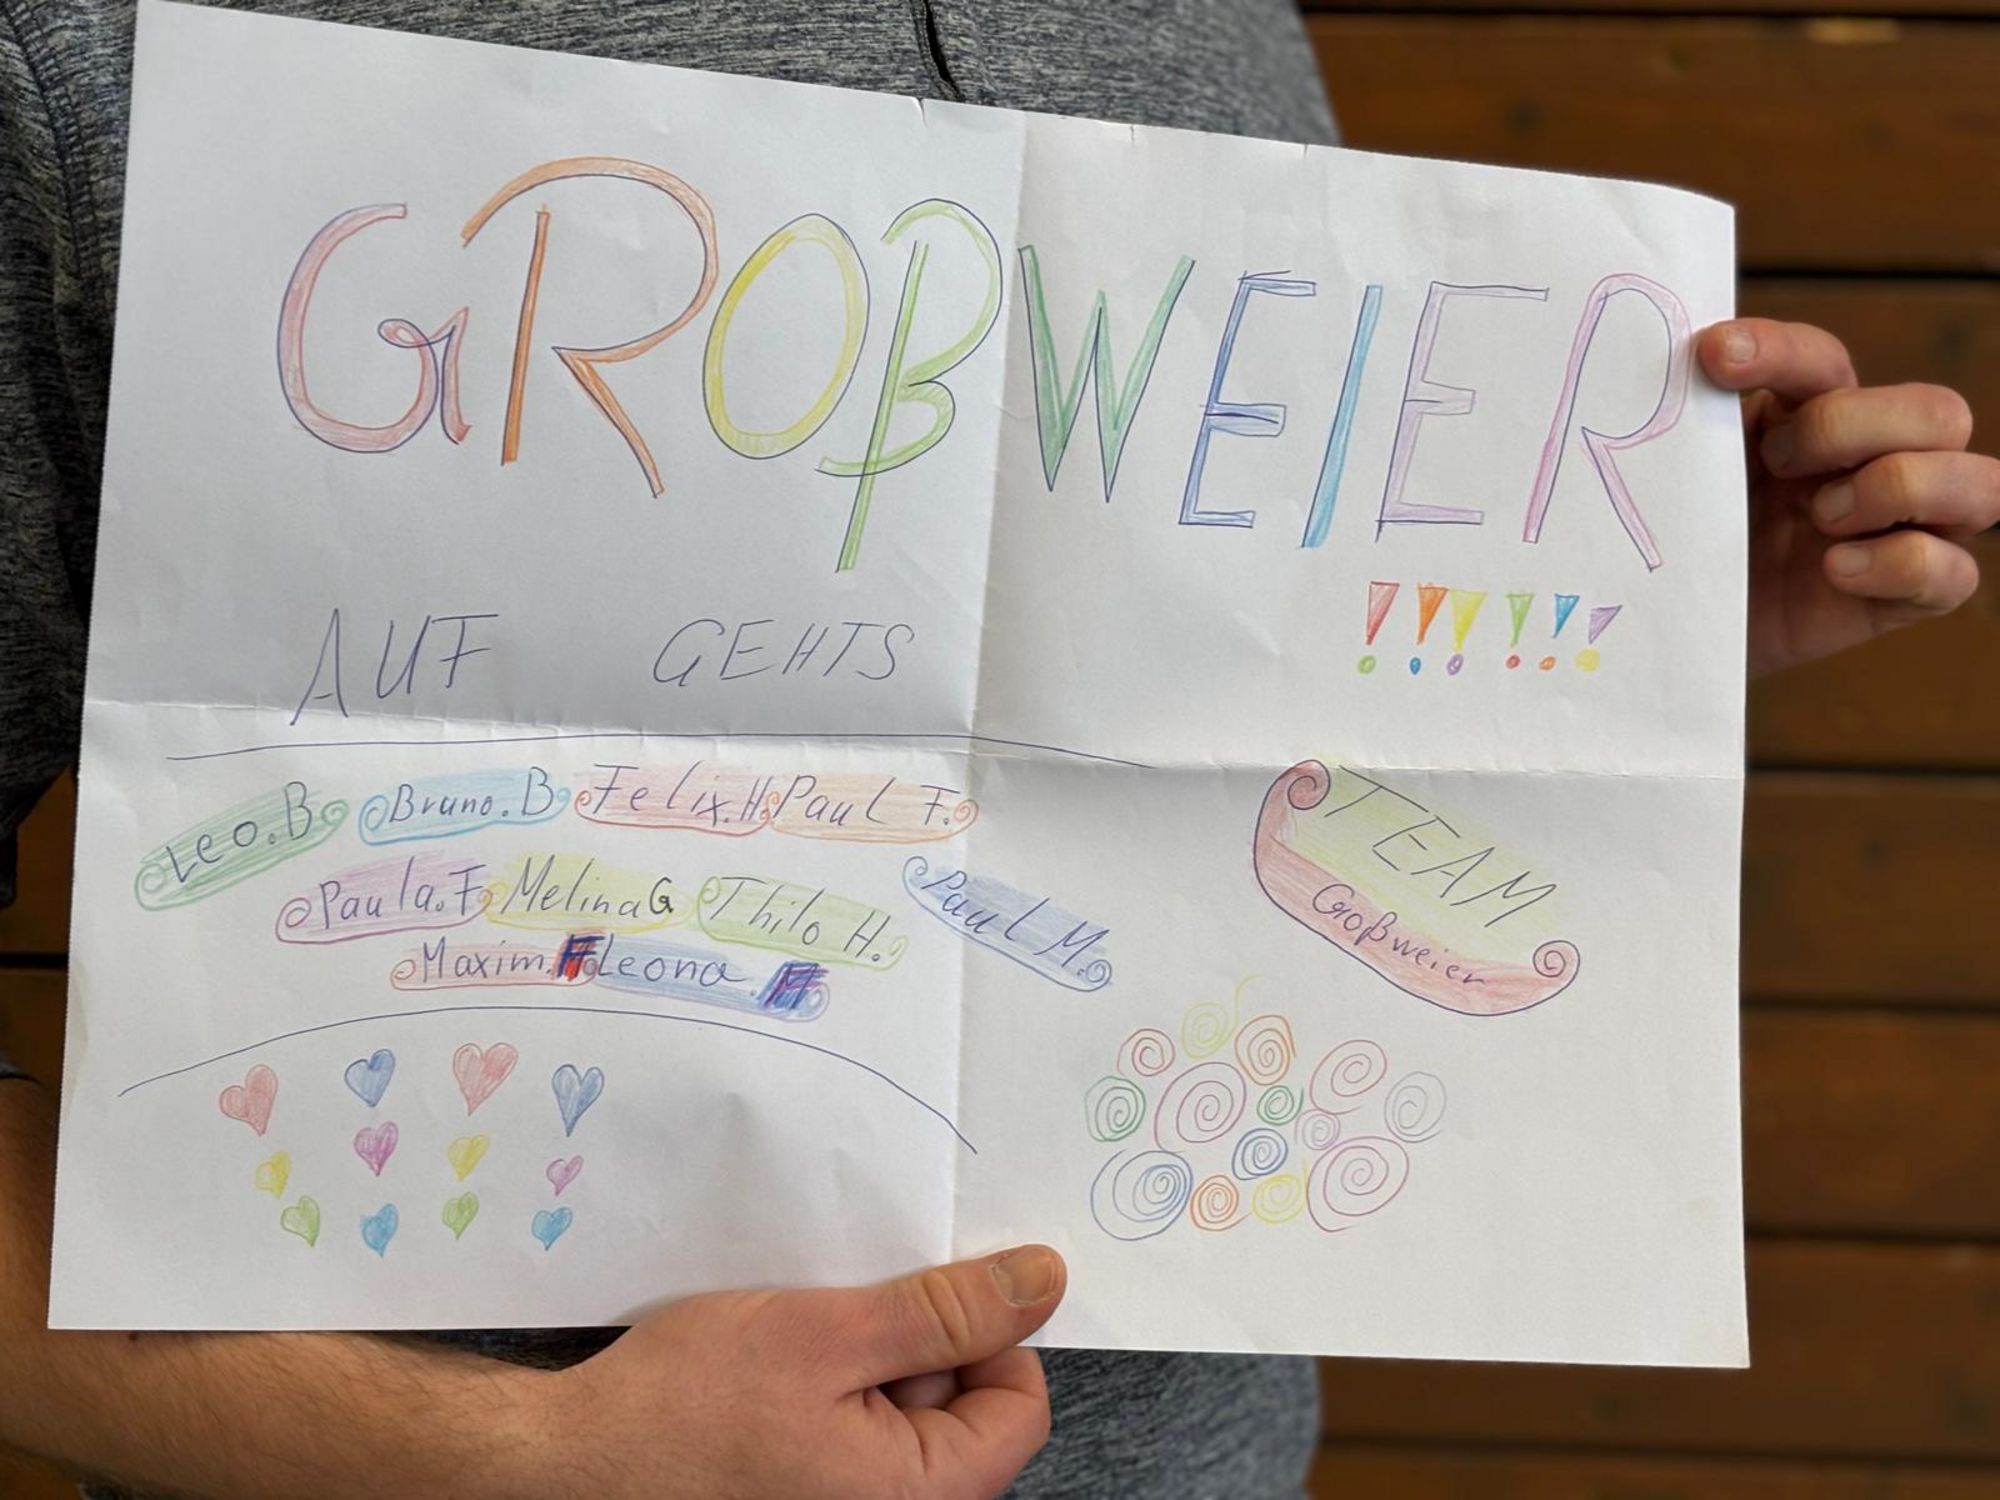 GROßWEIER
!!!!!!
AUF GEHTS
Leo.B. Bruno.B Felix.H. Paul F.
Paula.F Melina G Thilo H. Paul M.
Maxim. Leona.
TEAM
Großweier